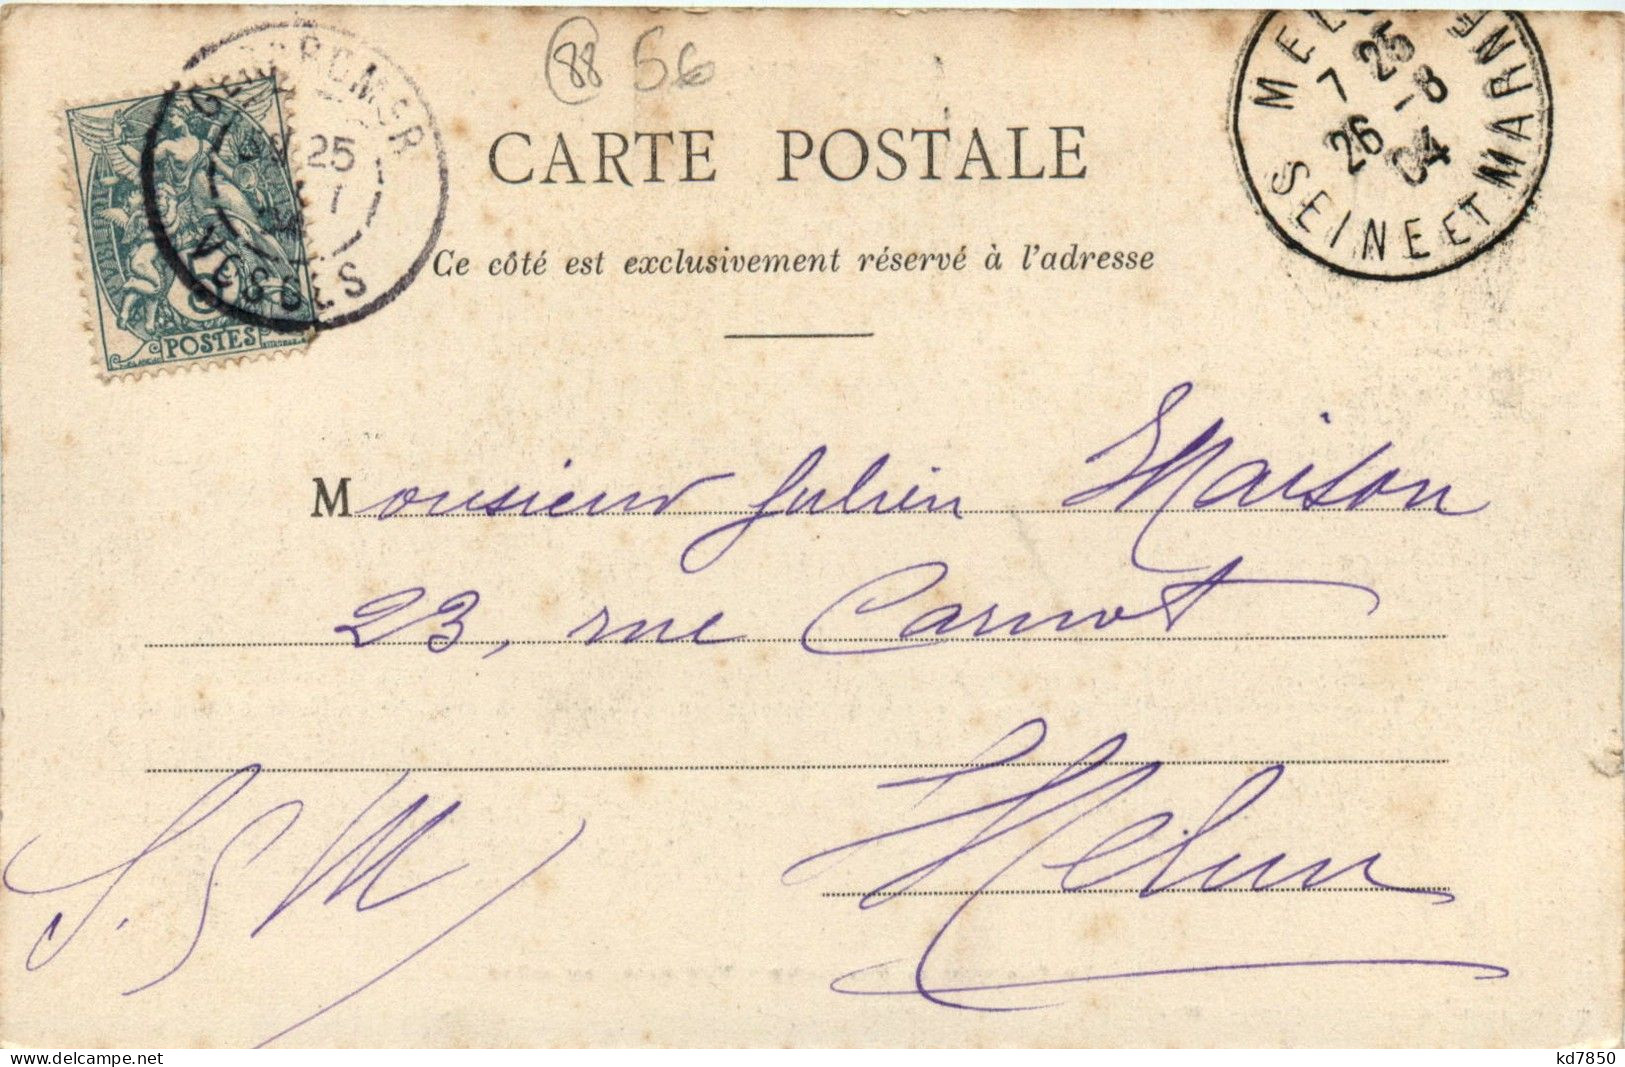 (88) 56
CARTE POSTALE
Ce côté est exclusivement réservé à l'adresse
GERARDMER
25
VOSGES
POSTES
MELUN
7 25
26 -1 8
04
SEINE ET MARNE
Monsieur Julien Maison
23, rue Carnot
Melun
kd7850